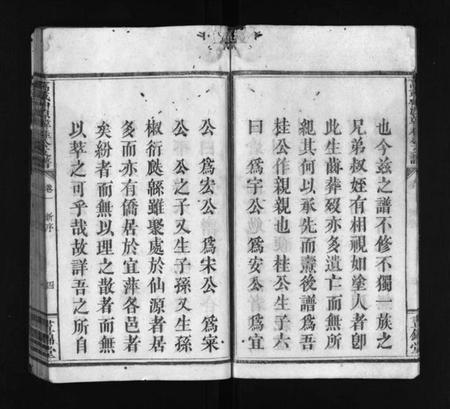 也今玆之譜不修不獨一族之
兄弟叔姪有相視如塗人者卽
此生齒葬殁亦多遺亡而無所
綂其何以承先而燾後譜爲吾
桂公作親親也桂公生子六
曰 公爲宇公爲安公爲宜
公曰 爲宏公 爲宋公 爲寀
公公之子又生子孫又生孫
椒衍瓞緜雖聚處於仙源者居
多而亦有僑居於宜萍各邑者
矣紛者而無以理之散者而無
以萃之可乎哉故詳吾之所自
卷一 新序
四